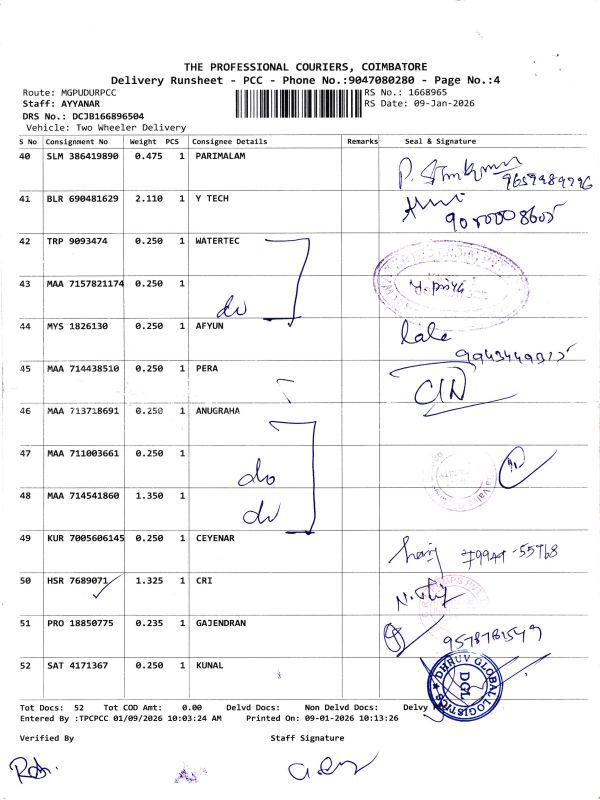 THE PROFESSIONAL COURIERS, COIMBATORE
Delivery Runsheet - PCC - Phone No.:9047080280 - Page No.:4
Route: MGPUDURPCC
RS No.: 1668965
Staff: AYYANAR
RS Date: 09-Jan-2026
DRS No.: DCJB166896504
Vehicle: Two Wheeler Delivery
S No Consignment No Weight PCS Consignee Details Remarks Seal & Signature
40 SLM 386419890 0.475 1 PARIMALAM
41 BLR 690481629 2.110 1 Y TECH
42 TRP 9093474 0.250 1 WATERTEC
43 MAA 7157821174 0.250 1
do
44 MYS 1826130 0.250 1 AFYUN
lala
9943449315
45 MAA 714438510 0.250 1 PERA
46 MAA 713718691 0.250 1 ANUGRAHA
47 MAA 711003661 0.250 1
do
48 MAA 714541860 1.350 1
do
49 KUR 7005606145 0.250 1 CEYENAR
50 HSR 7689071 1.325 1 CRI
51 PRO 18850775 0.235 1 GAJENDRAN
52 SAT 4171367 0.250 1 KUNAL
DHRUV GLOBAL LOGISTICS
DGL
Tot Docs: 52 Tot COD Amt: 0.00 Delvd Docs: Non Delvd Docs: Delvy
Entered By :TPCPCC 01/09/2026 10:03:24 AM Printed On: 09-01-2026 10:13:26
Verified By Staff Signature